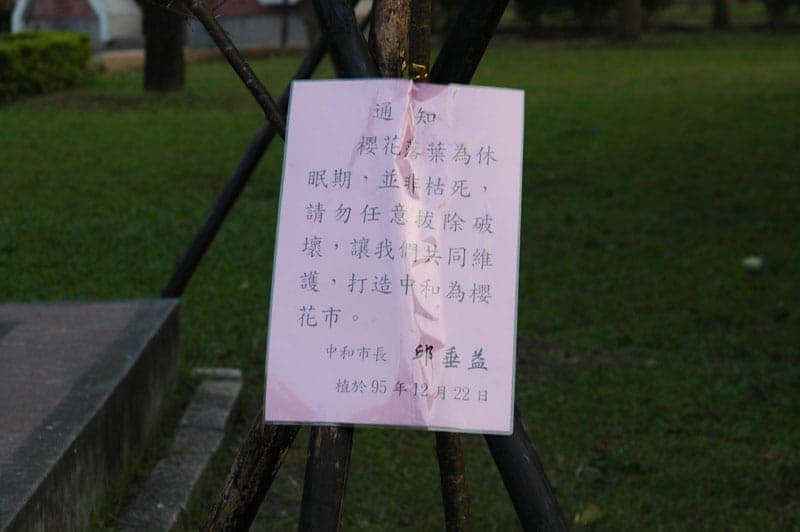 通知
櫻花落葉為休
眠期，並非枯死，
請勿任意拔除破
壞，讓我們共同維
護，打造中和為櫻
花市。
中和市長 邱垂益
植於95年12月22日